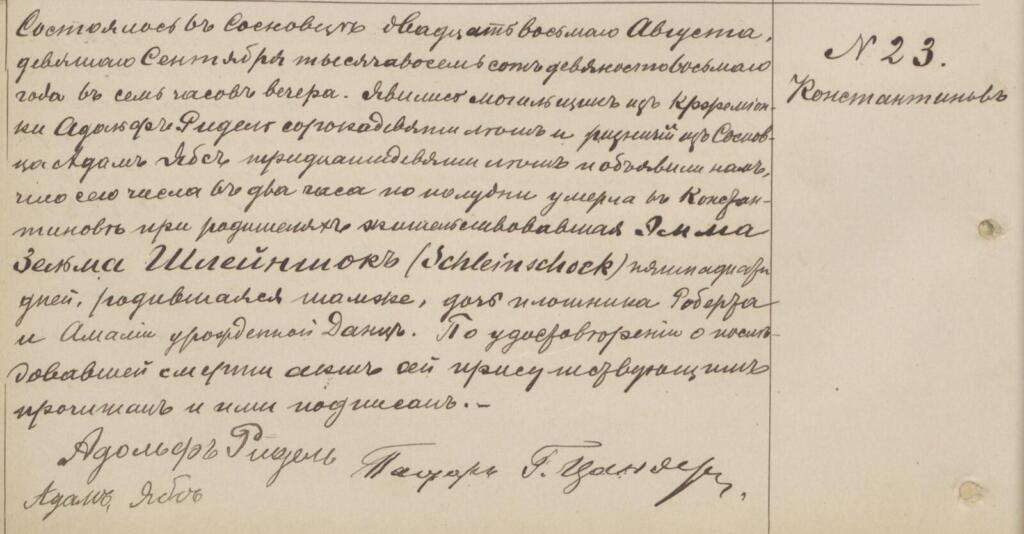 Состоялось въ Сосновцѣ двадцать восьмаго Августа,
девятаго Сентября тысяча восемьсотъ девяносто восьмаго
года въ семь часовъ вечера. Явились могильщикъ изъ
ки Адольфъ Ридель сорока девяти лѣтъ и ризничій изъ Соснов-
ца Адамъ Ябсъ тридцати девяти лѣтъ и объявили намъ,
что сего числа въ два часа по полудни умерла въ Констан-
тиновѣ при родителяхъ жительствовавшая Эмма
Зельма Шлейншокъ (Schleinschock) пятнадцати
дней, родившаяся тамже, дочь плотника Роберта
и Амаліи урожденной Данцъ. По удостовѣреніи о послѣ-
довавшей смерти актъ сей присутствующимъ
прочитанъ и ими подписанъ.-
Адольфъ Ридель
Адамъ Ябсъ
Пасторъ Г.
N 23.
Константиновъ